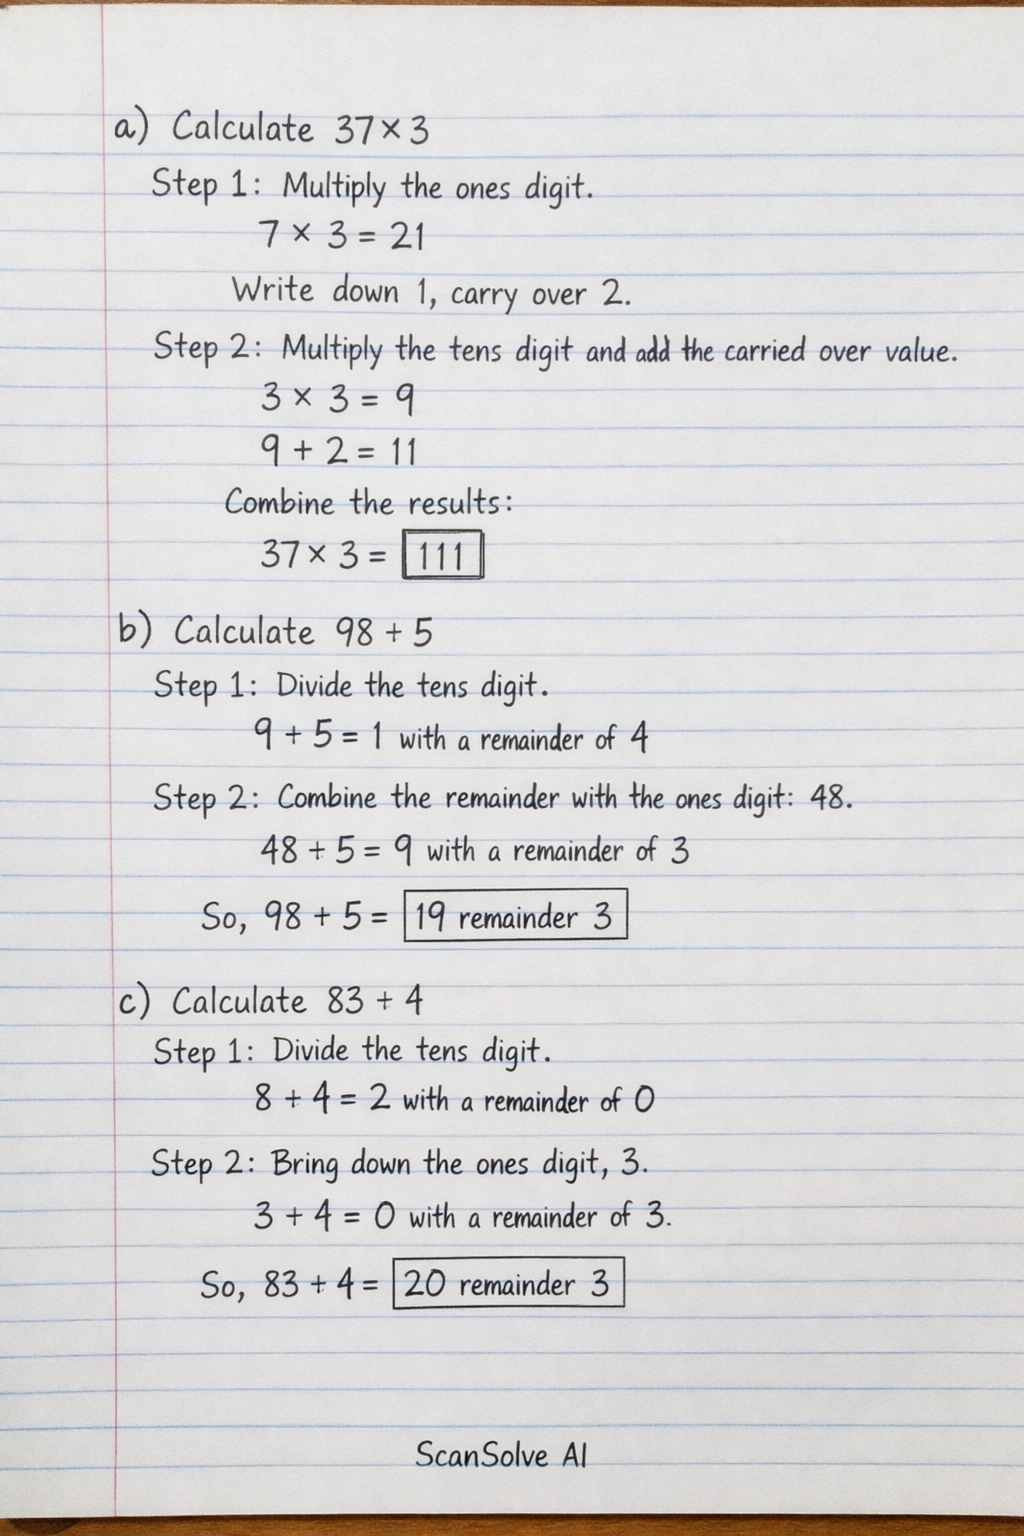 a) Calculate 37 × 3
Step 1: Multiply the ones digit.
7 × 3 = 21
Write down 1, carry over 2.
Step 2: Multiply the tens digit and add the carried over value.
3 × 3 = 9
9 + 2 = 11
Combine the results:
37 × 3 = 111
b) Calculate 98 + 5
Step 1: Divide the tens digit.
9 + 5 = 1 with a remainder of 4
Step 2: Combine the remainder with the ones digit: 48.
48 + 5 = 9 with a remainder of 3
So, 98 + 5 = 19 remainder 3
c) Calculate 83 + 4
Step 1: Divide the tens digit.
8 + 4 = 2 with a remainder of 0
Step 2: Bring down the ones digit, 3.
3 + 4 = 0 with a remainder of 3.
So, 83 + 4 = 20 remainder 3
ScanSolve AI